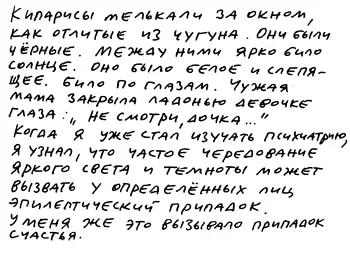 Кипарисы мелькали за окном,
как отлитые из чугуна. Они были
чёрные. Между ними ярко било
солнце. Оно было белое и слепя-
щее. Било по глазам. Чужая
мама закрыла ладонью девочке
глаза: „Не смотри, дочка..."
Когда я уже стал изучать психиатрию,
я узнал, что частое чередование
яркого света и темноты может
вызвать у определённых лиц
эпилептический припадок.
У меня же это вызывало припадок
счастья.